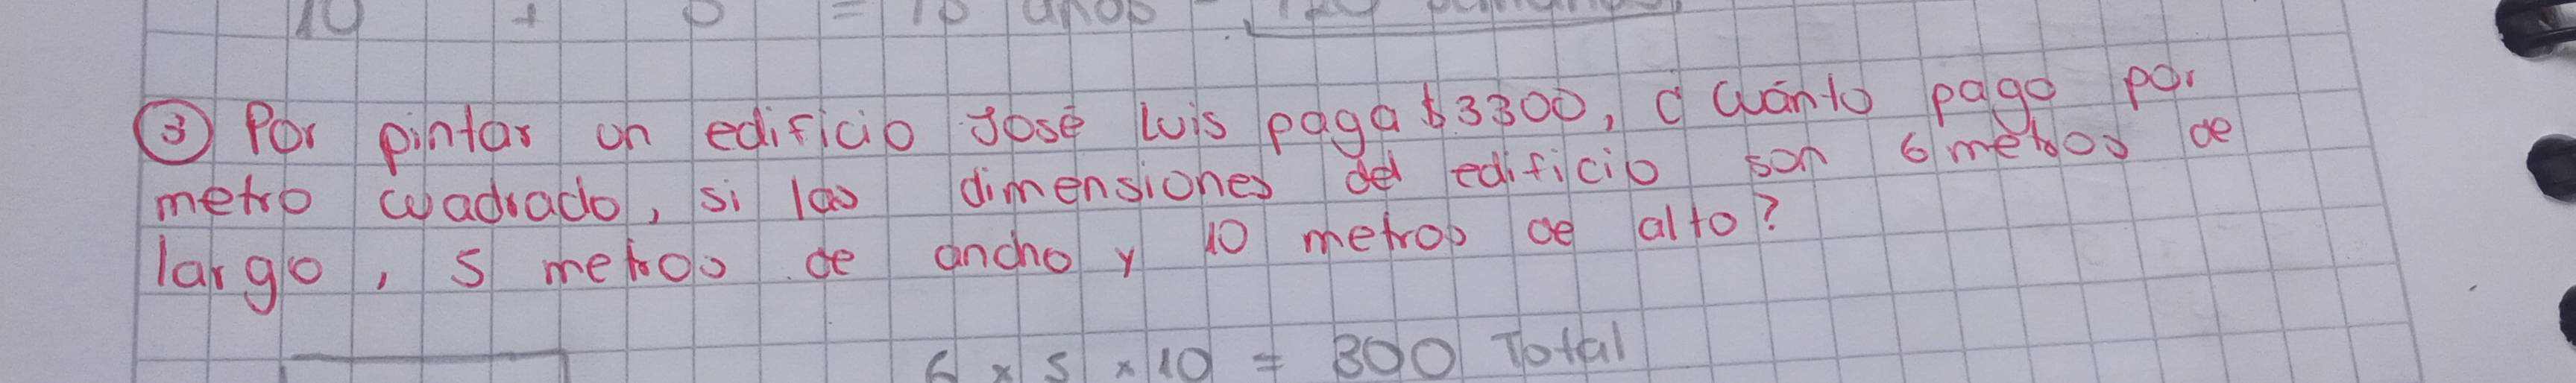 10 + 8 = 18 años
③ Por pintar un edificio José Luis paga $3300, ¿Cuánto pago por
metro cuadrado, si las dimensiones del edificio son 6 metros de
largo, 5 metros de ancho y 10 metros de alto?
6 x 5 x 10 = 300 Total